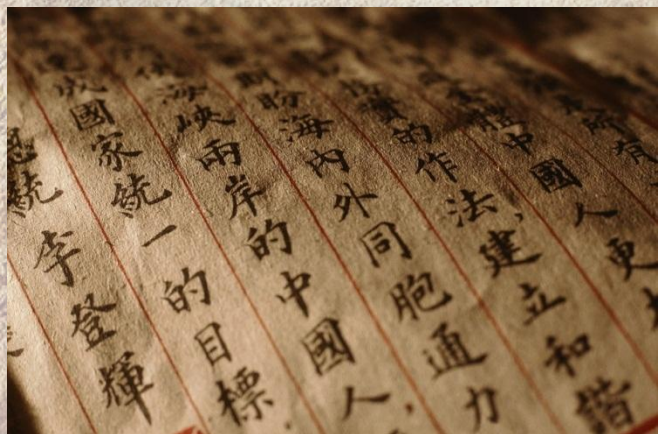 所有
體中國人更
實的作法，建立和諧
期盼海內外同胞通力
海峽兩岸的中國人，
成國家統一的目標。
總統李登輝